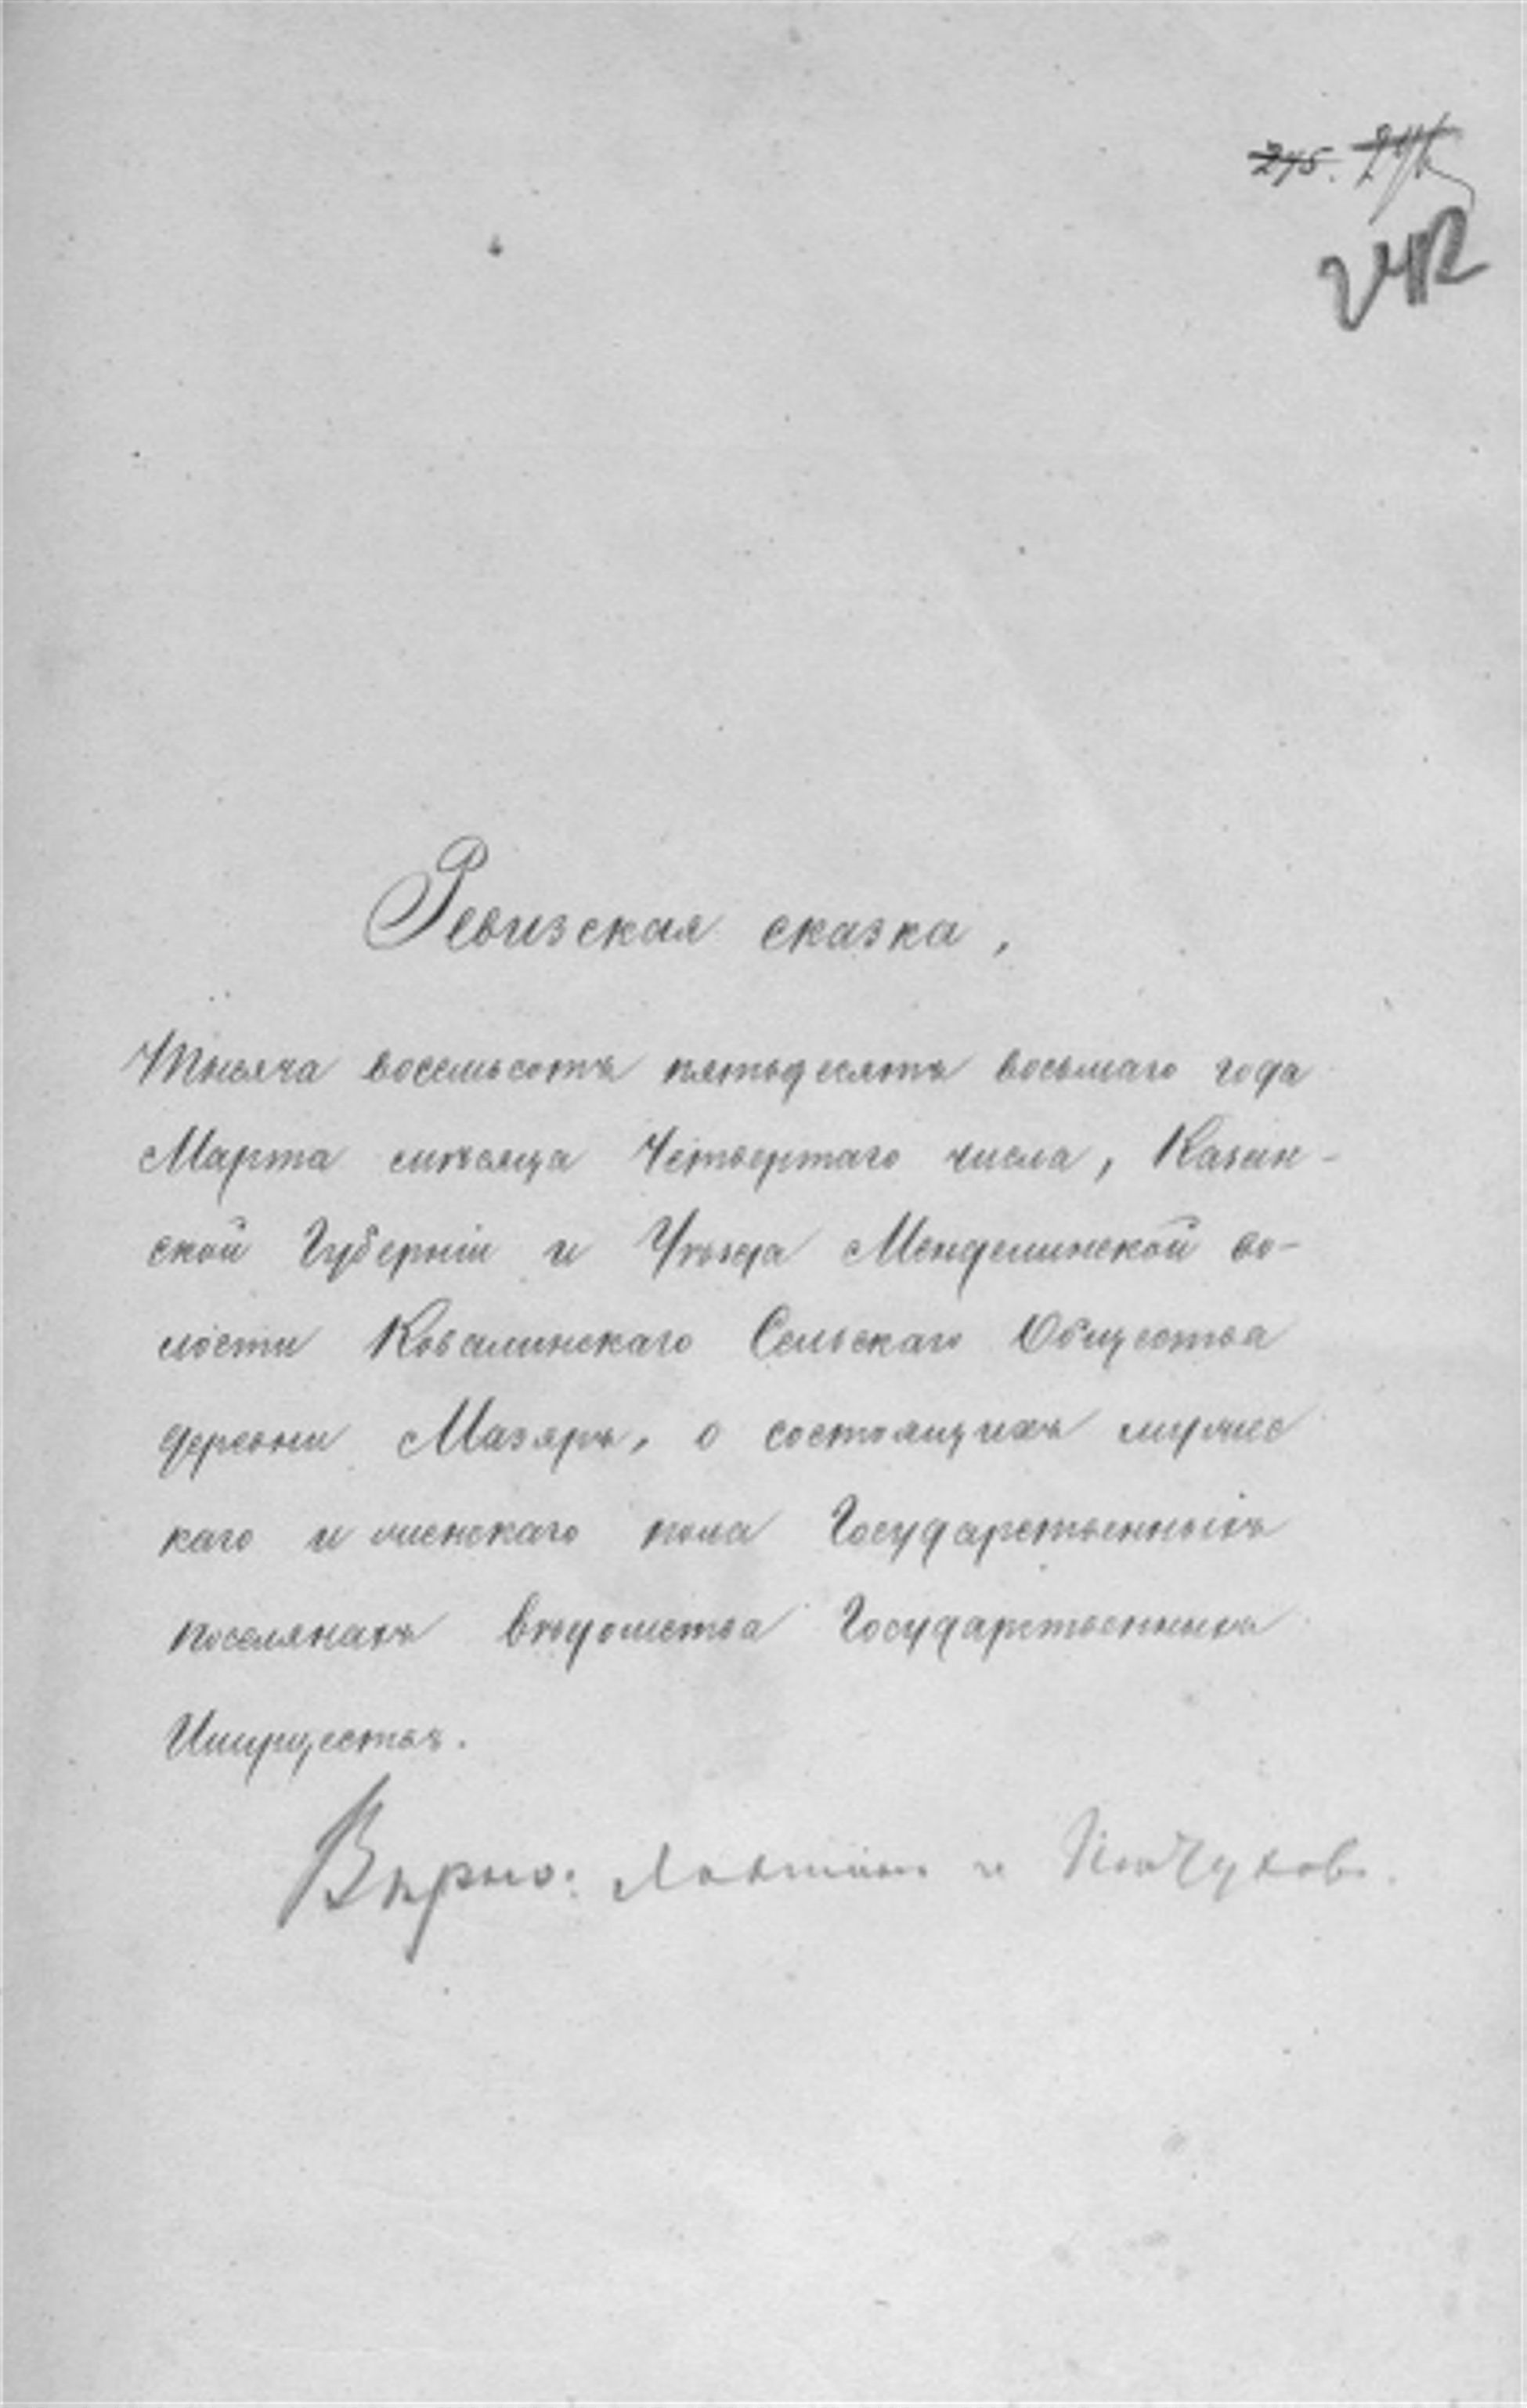 275.
242
Ревизская сказка,
Тысяча восемьсотъ пятьдесятъ восьмаго года
Марта мѣсяца Четвертаго числа, Казан-
ской Губерніи и Уѣзда Менделинской во-
лости Ковалинскаго Сельскаго Общества
деревни Мазяръ, о состоящихъ мужес
каго и женскаго пола Государственныхъ
поселянахъ вѣдомства Государственныхъ
Имуществъ.
Вѣрно: и